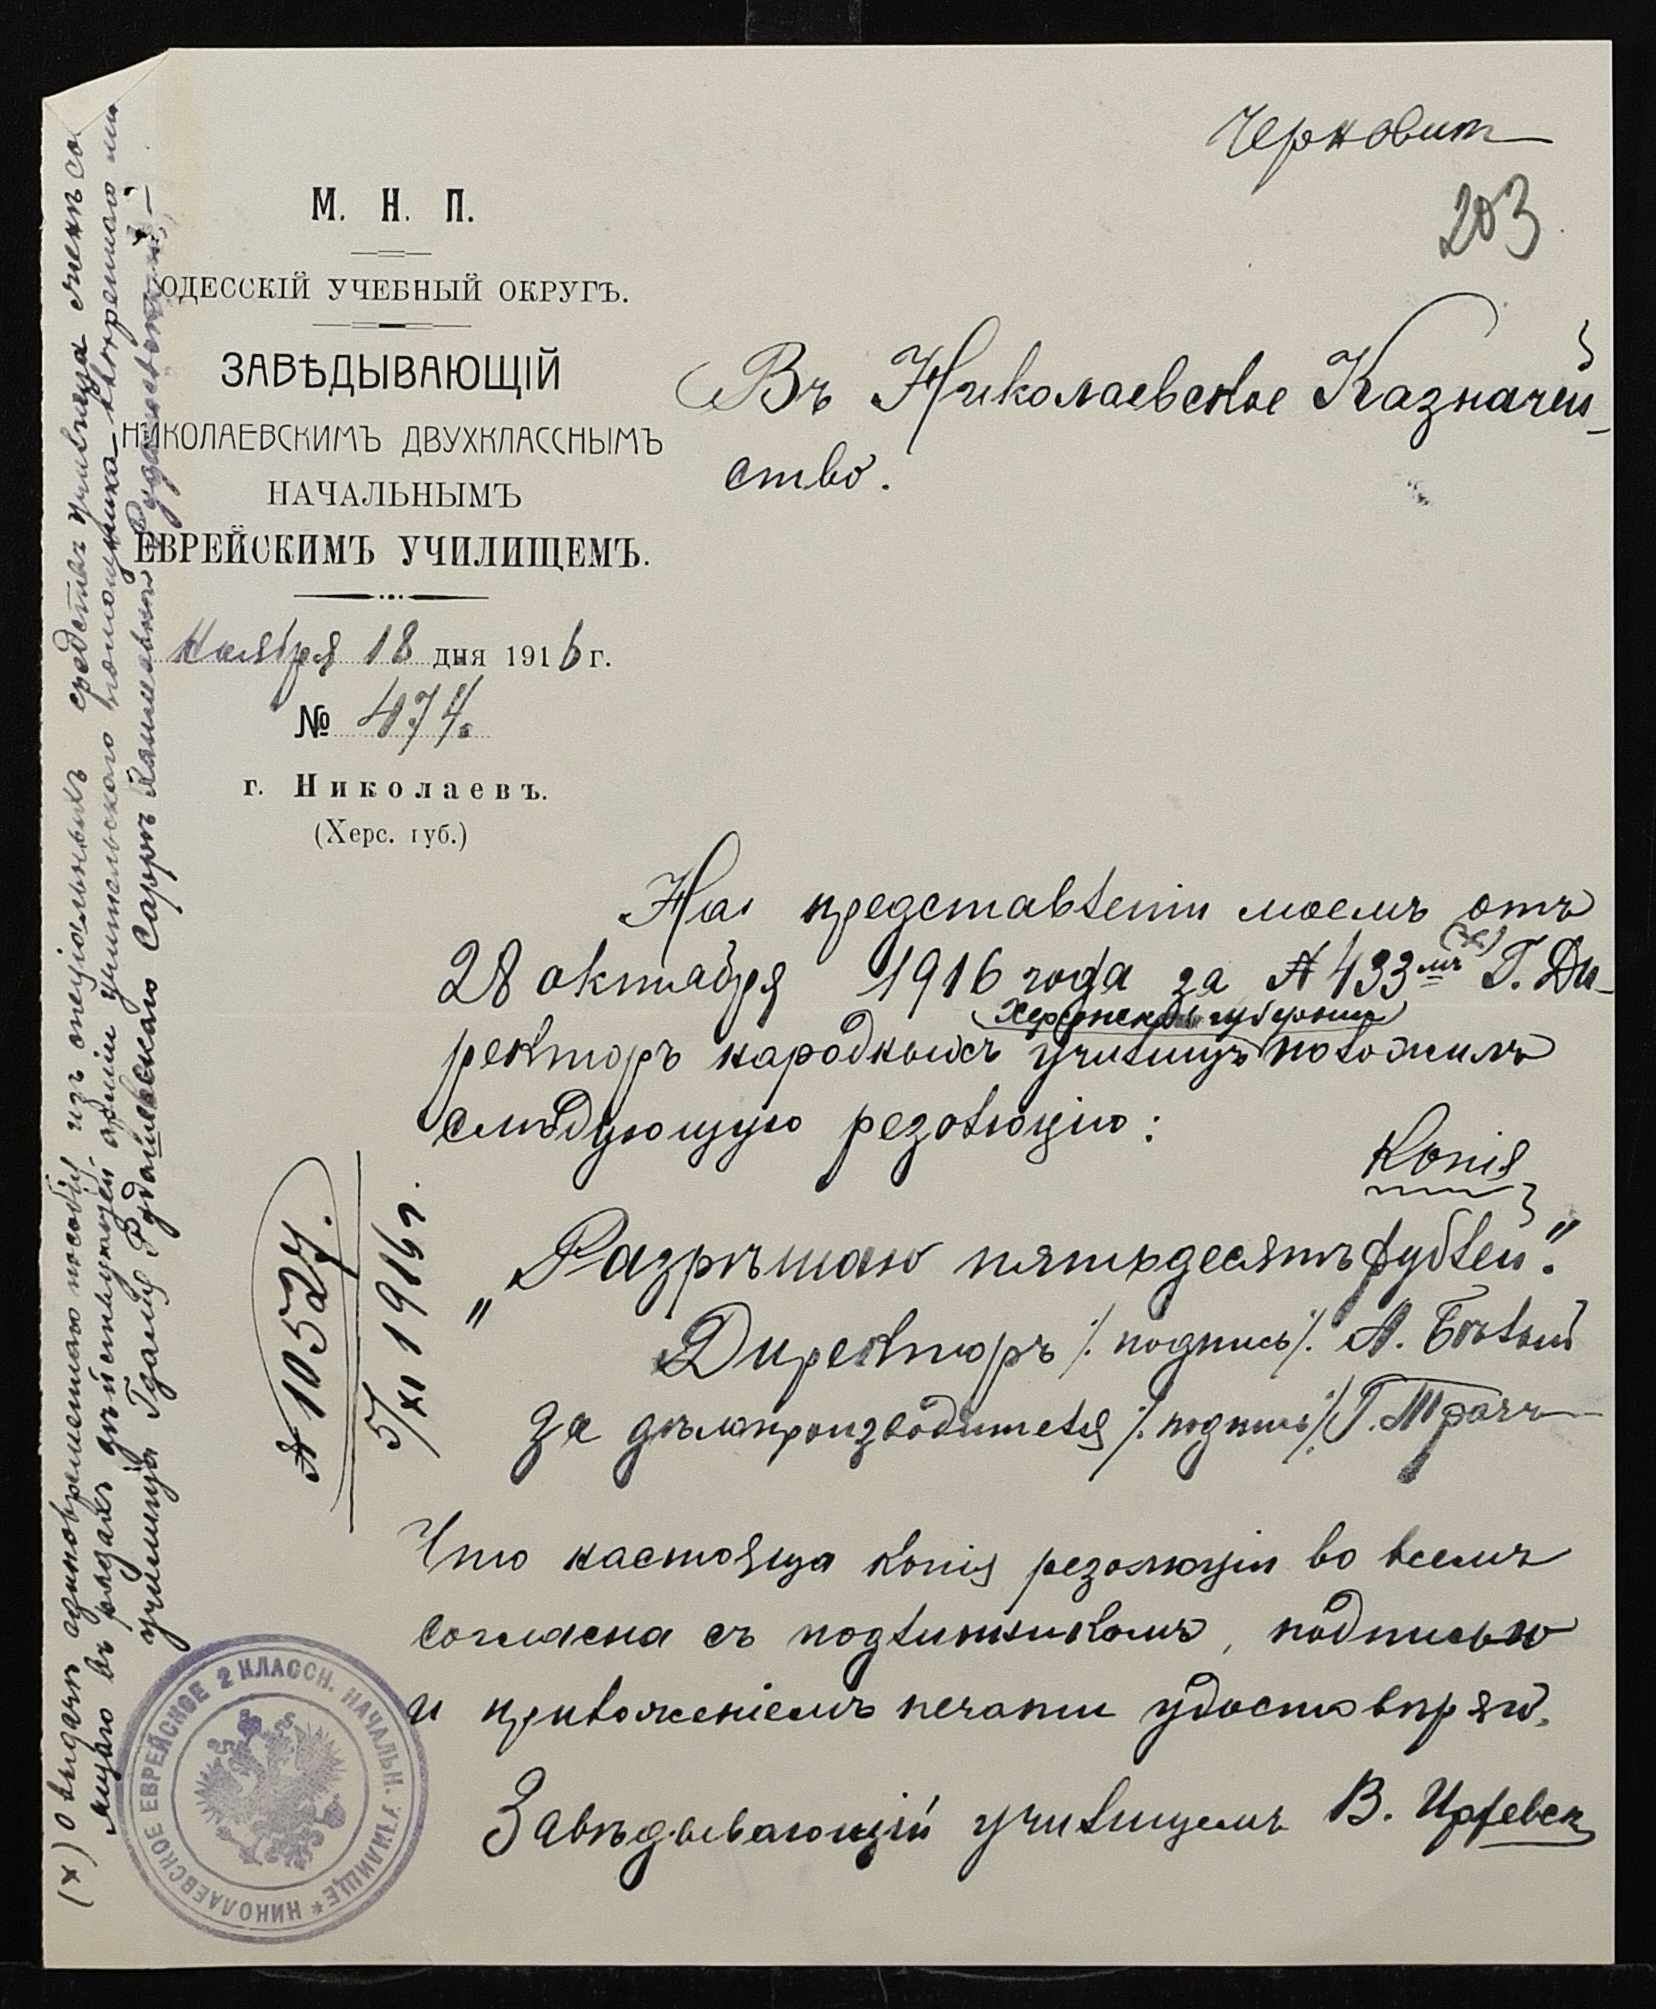 Черновик
203
М. Н. П.
ОДЕССКІЙ УЧЕБНЫЙ ОКРУГЪ.
ЗАВѢДЫВАЮЩІЙ
НИКОЛАЕВСКИМЪ ДВУХКЛАССНЫМЪ
НАЧАЛЬНЫМЪ
ЕВРЕЙСКИМЪ УЧИЛИЩЕМЪ.
Ноября 18 дня 1916 г.
№ 474.
г. Николаевъ.
(Херс. губ.)
Въ Николаевское Казначей-
ство.
На представленіи моемъ отъ
28 октября 1916 года за № 433мъ (х) Г. Ди-
Херсонской губерніи
ректоръ народныхъ училищъ положилъ
слѣдующую резолюцію:
Копія
„Разрѣшаю пятьдесятъ рублей."
Директоръ /подпись/. А. Бѣлый
За дѣлопроизводителя /подпись/ Г. Трачъ
№ 10527.
5/XI 1916 г.
Что настояща копія резолюціи во всемъ
согласна съ подлинникомъ, подписью
и приложеніемъ печати удостовѣряю.
Завѣдывающій училищемъ В.
НИКОЛАЕВСКОЕ ЕВРЕЙСКОЕ 2 КЛАССН. НАЧАЛЬН. УЧИЛИЩЕ *
(х) О выдачѣ единовременнаго пособія изъ спеціальныхъ средствъ училища женѣ со
ящаго въ рядахъ дѣйствующей арміи учительскаго помощника
училища Сарръ